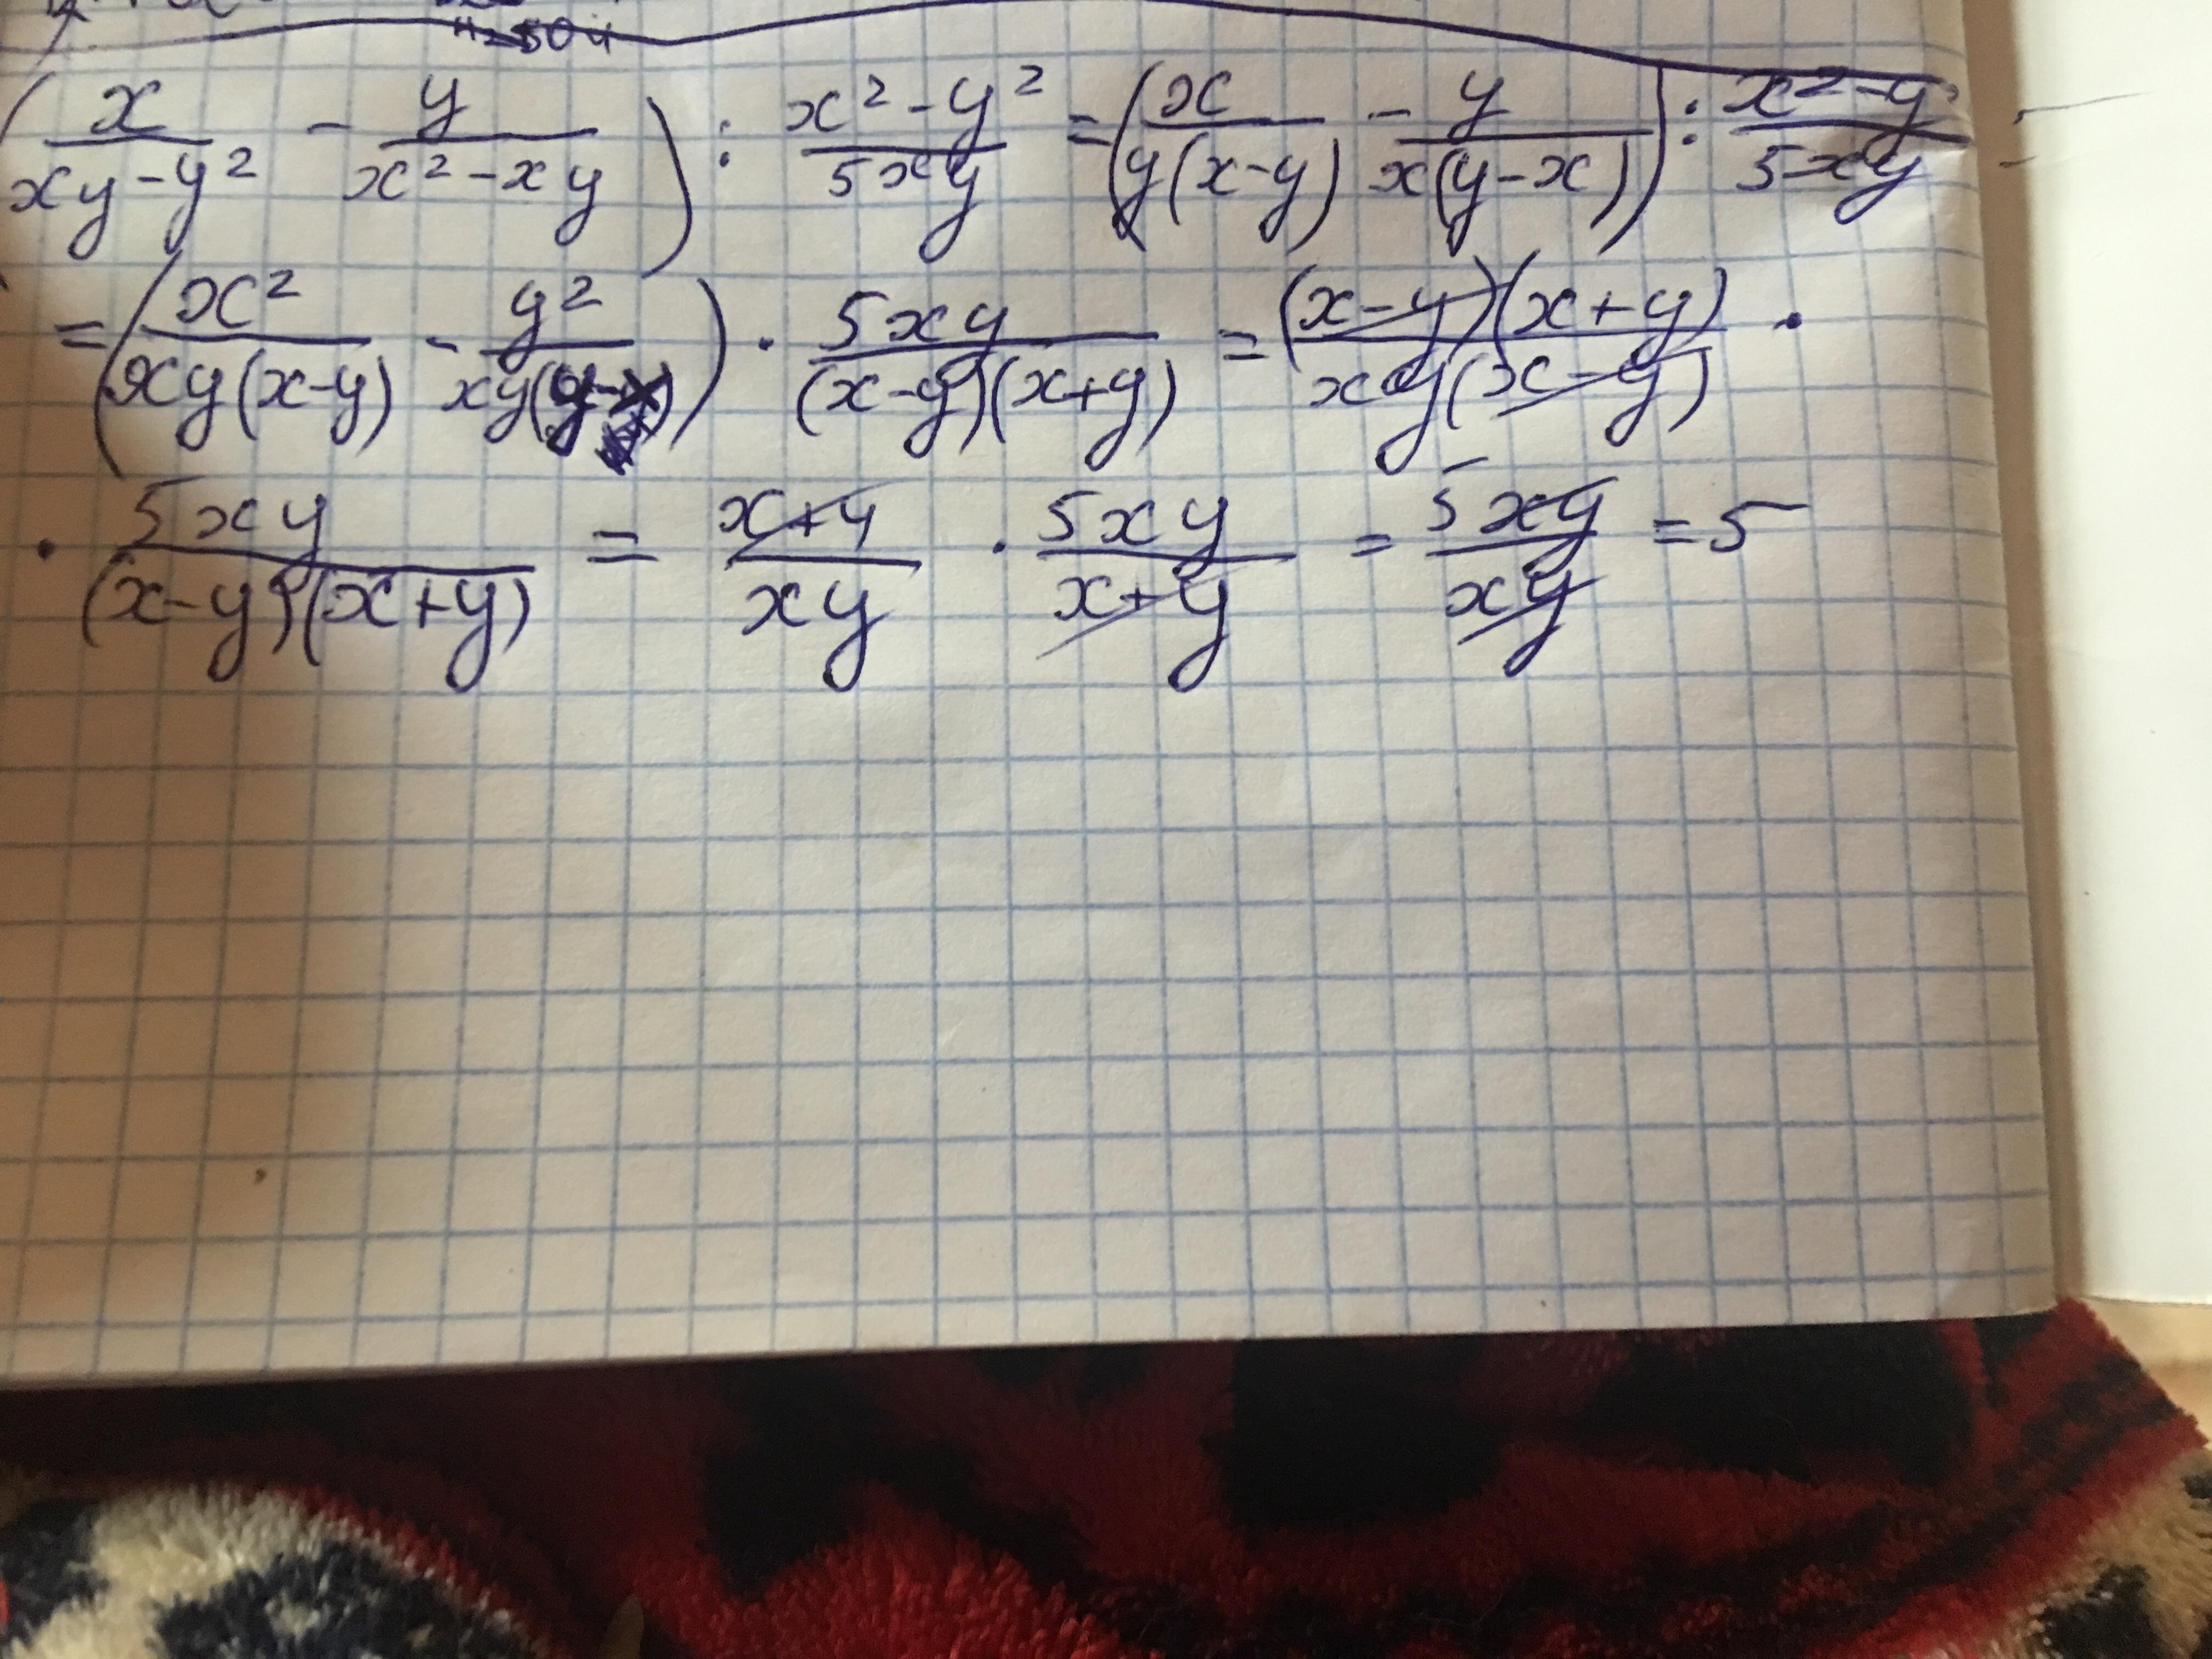 ( x/(xy-y²) - y/(x²-xy) ) : (x²-y²)/(5xy) = ( x/(y(x-y)) - y/(x(y-x)) ) : (x²-y)/(5xy) =
= ( x²/(xy(x-y)) - y²/(xy(y-x)) ) · 5xy/((x-y)(x+y)) = ((x-y)(x+y))/(xy(x-y)) ·
· 5xy/((x-y)(x+y)) = (x+y)/(xy) · 5xy/(x+y) = 5xy/xy = 5